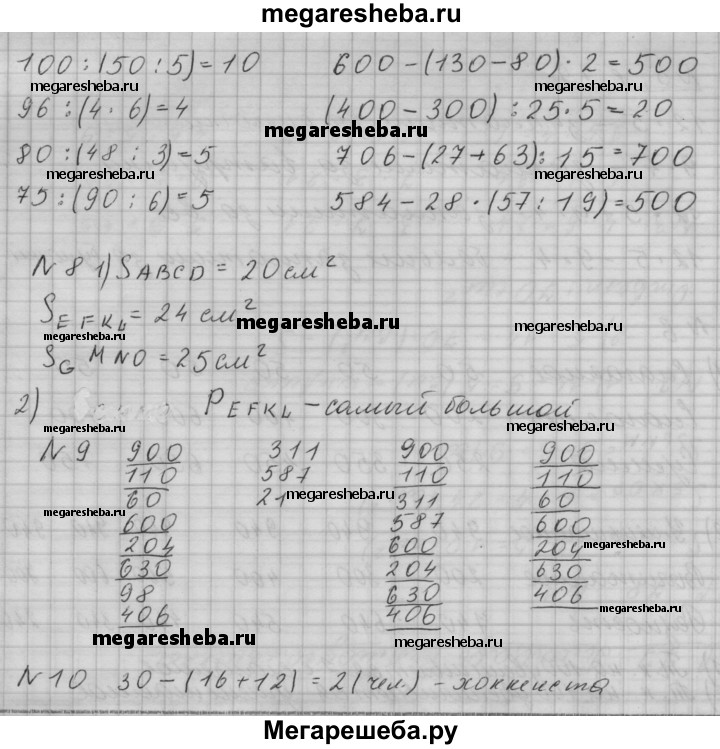 megaresheba.ru
100 : (50 : 5) = 10 600 - (130 - 80) · 2 = 500
megaresheba.ru megaresheba.ru
96 : (4 · 6) = 4 (400 - 300) : 25 · 5 = 20
megaresheba.ru
80 : (48 : 3) = 5 706 - (27 + 63) : 15 = 700
megaresheba.ru megaresheba.ru
75 : (90 : 6) = 5 584 - 28 · (57 : 19) = 500
N 8 1) SABCD = 20 см²
SEFKL = 24 см²
megaresheba.ru megaresheba.ru
megaresheba.ru
SGMNO = 25 см²
2) PEFKL - самый большой
megaresheba.ru megaresheba.ru
N 9 900 311 900 900
110 587 110 110
60 21 311 60
megaresheba.ru
megaresheba.ru
600 587 600
204 600 204
megaresheba.ru
630 204 630
98 630 406
406 406
megaresheba.ru megaresheba.ru
megaresheba.ru
N 10 30 - (16 + 12) = 2 (чел.) - хоккеиста
Мегарешеба.ру